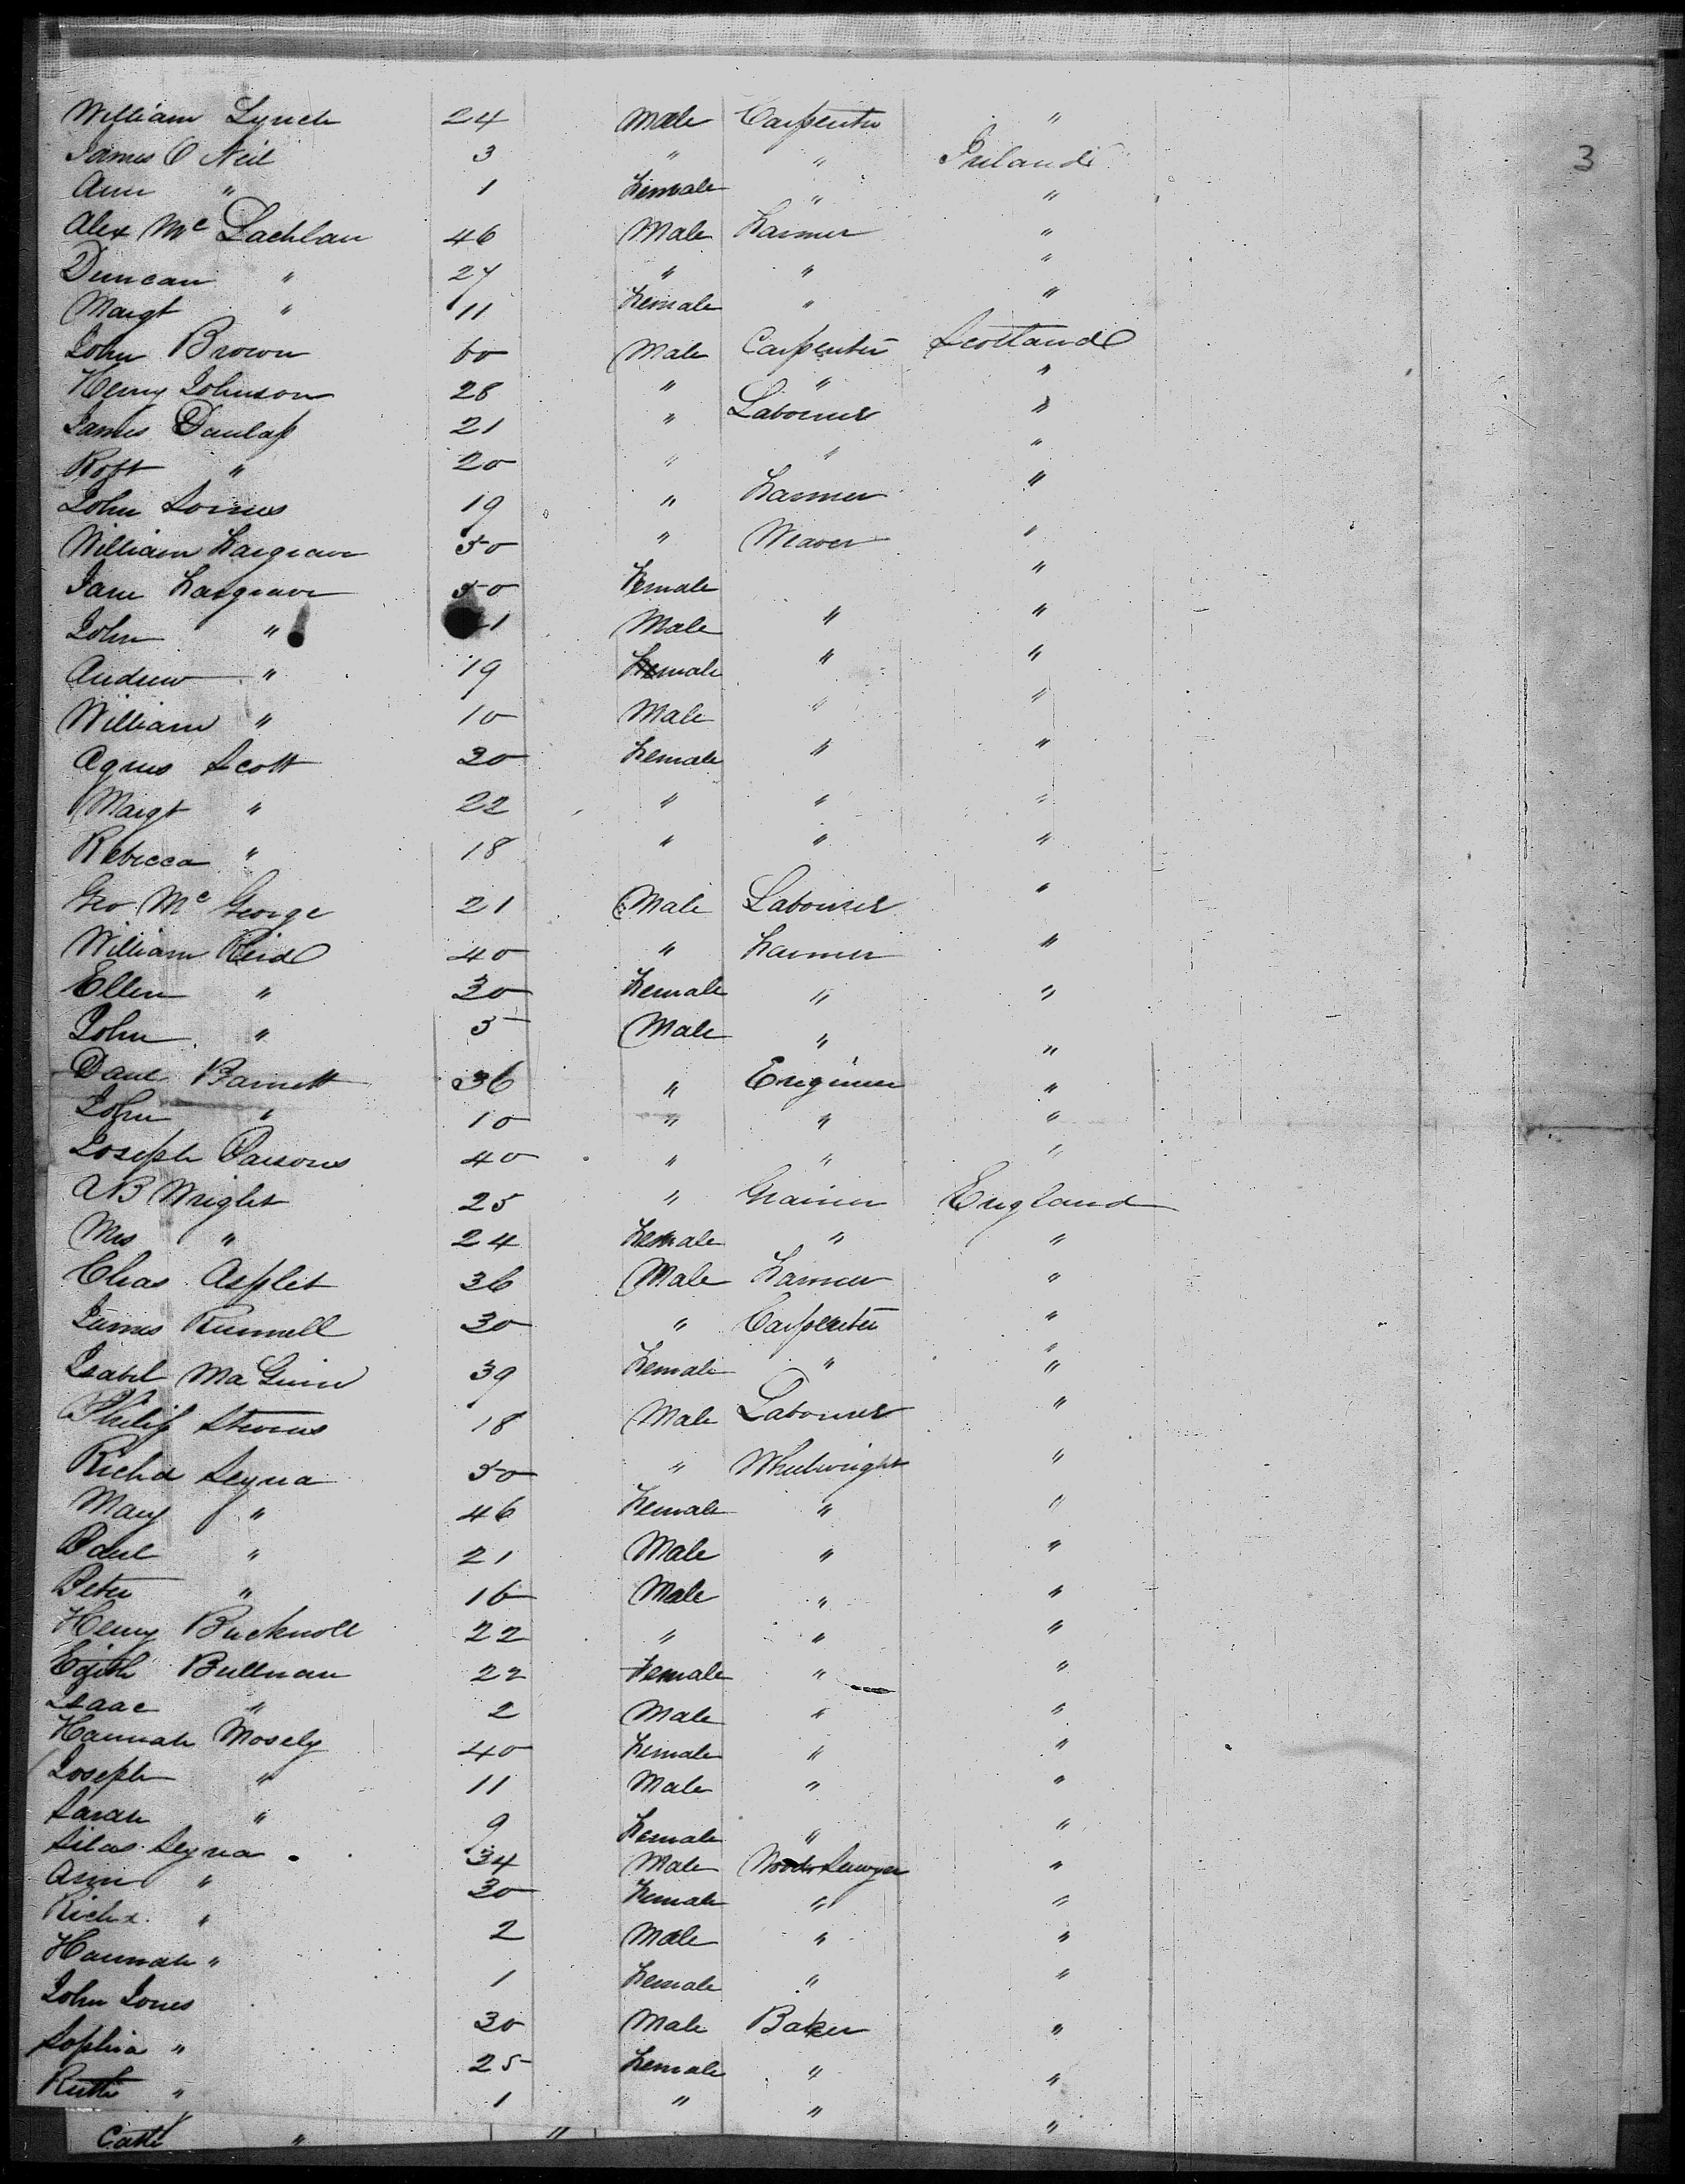 3
William Lynch 24 Male Carpenter "
James O Neil 3 " " Ireland
Ann " 1 Female " "
Alex Mc Lachlan 46 Male Farmer "
Duncan " 27 " " "
Margt " 11 Female " "
John Brown 60 Male Carpenter Scotland
Henry Johnson 28 " " "
James Dunlap 21 " Labourer "
Robt " 20 " " "
John 19 " Farmer "
William Hargrave 50 " Weaver "
Jane Hargrave 50 Female "
John " 21 Male " "
Andrew " 19 male " "
William " 10 Male " "
Agnes Scott 30 Female " "
Margt " 22 " " "
Rebecca " 18 " " "
Geo Mc George 21 Male Labourer "
William Reid 40 " Farmer "
Ellen " 30 Female " "
John " 5 Male " "
Danl Barnett 36 " Engineer "
John " 10 " " "
Joseph Parsons 40 " " "
Wright 25 " Grainer England
Mrs " 24 Female " "
Chas Asplet 36 Male Farmer "
James Rummell 30 " Carpenter "
Isabel Ma Guire 39 Female " "
Philip Stevens 18 Male Labourer "
Richd Seyna 50 " Wheelwright "
Mary " 46 Female " "
Paul " 21 Male " "
Peter " 16 Male " "
Henry Bucknoll 22 " " "
Edith Bullman 22 Female " "
Isaac " 2 Male " "
Hannah Mosely 40 Female " "
Joseph " 11 Male " "
Sarah " 9 Female " "
Silas Seyna 34 Male Wood Sawyer "
Ann " 30 Female " "
Richd " 2 Male " "
Hannah " 1 Female " "
John Jones 30 Male Baker "
Sophia " 25 Female " "
Ruth " 1 " " "
" " "